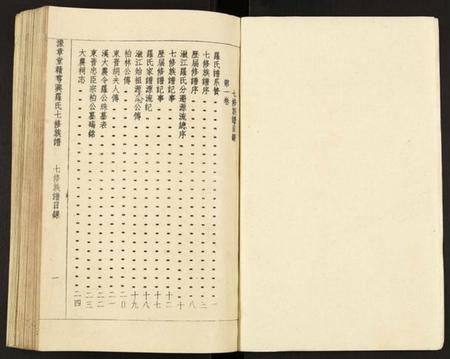 七修族譜目錄
第一卷
羅氏譜系贊 一
七修族譜序 三
歷屆修譜序 八
潋江羅氏分遷源流總序 十
七修族譜記事 十二
歷屆修譜記事 十七
羅氏家譜源流紀 十八
潋江始祖源公傳 十九
柏林公傳 二〇
東晉胡夫人傳 二一
漢大農令羅公珠墓表 二二
東晉忠臣宗柏公墓碣銘 二三
大農祠志 二四
豫章堂贛粵興羅氏七修族譜 七修族譜目錄 一